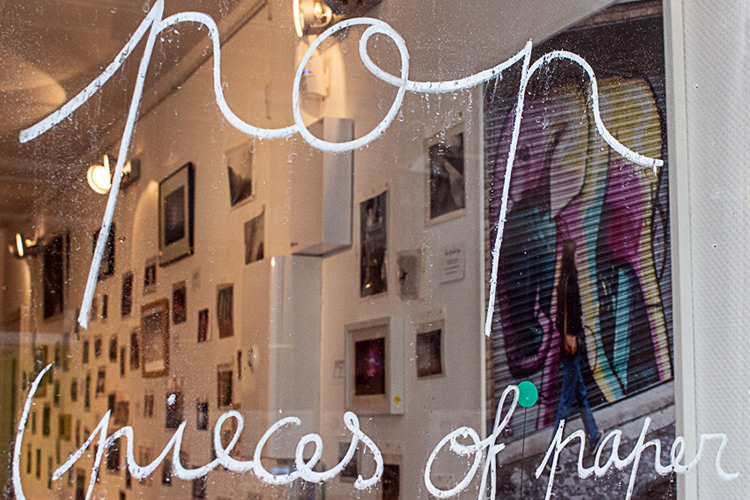 pop
(pieces of paper